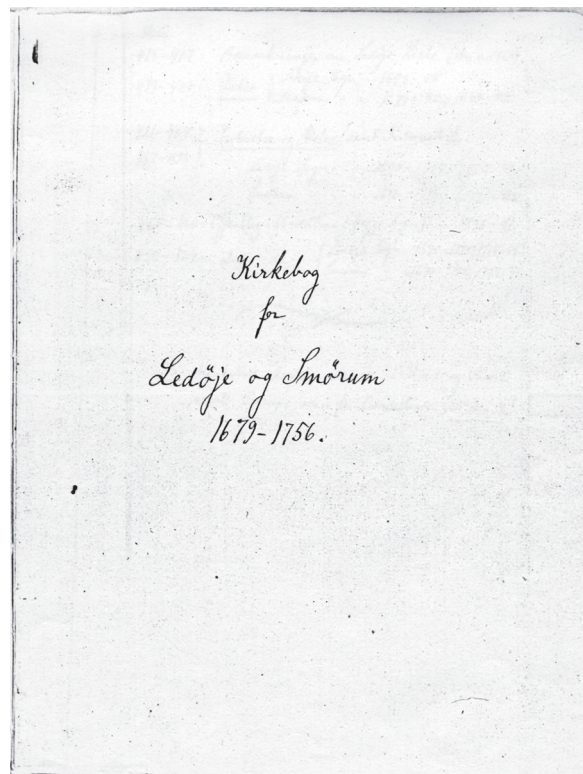 Kirkebog
for
Ledöje og Smörum
1679-1756.